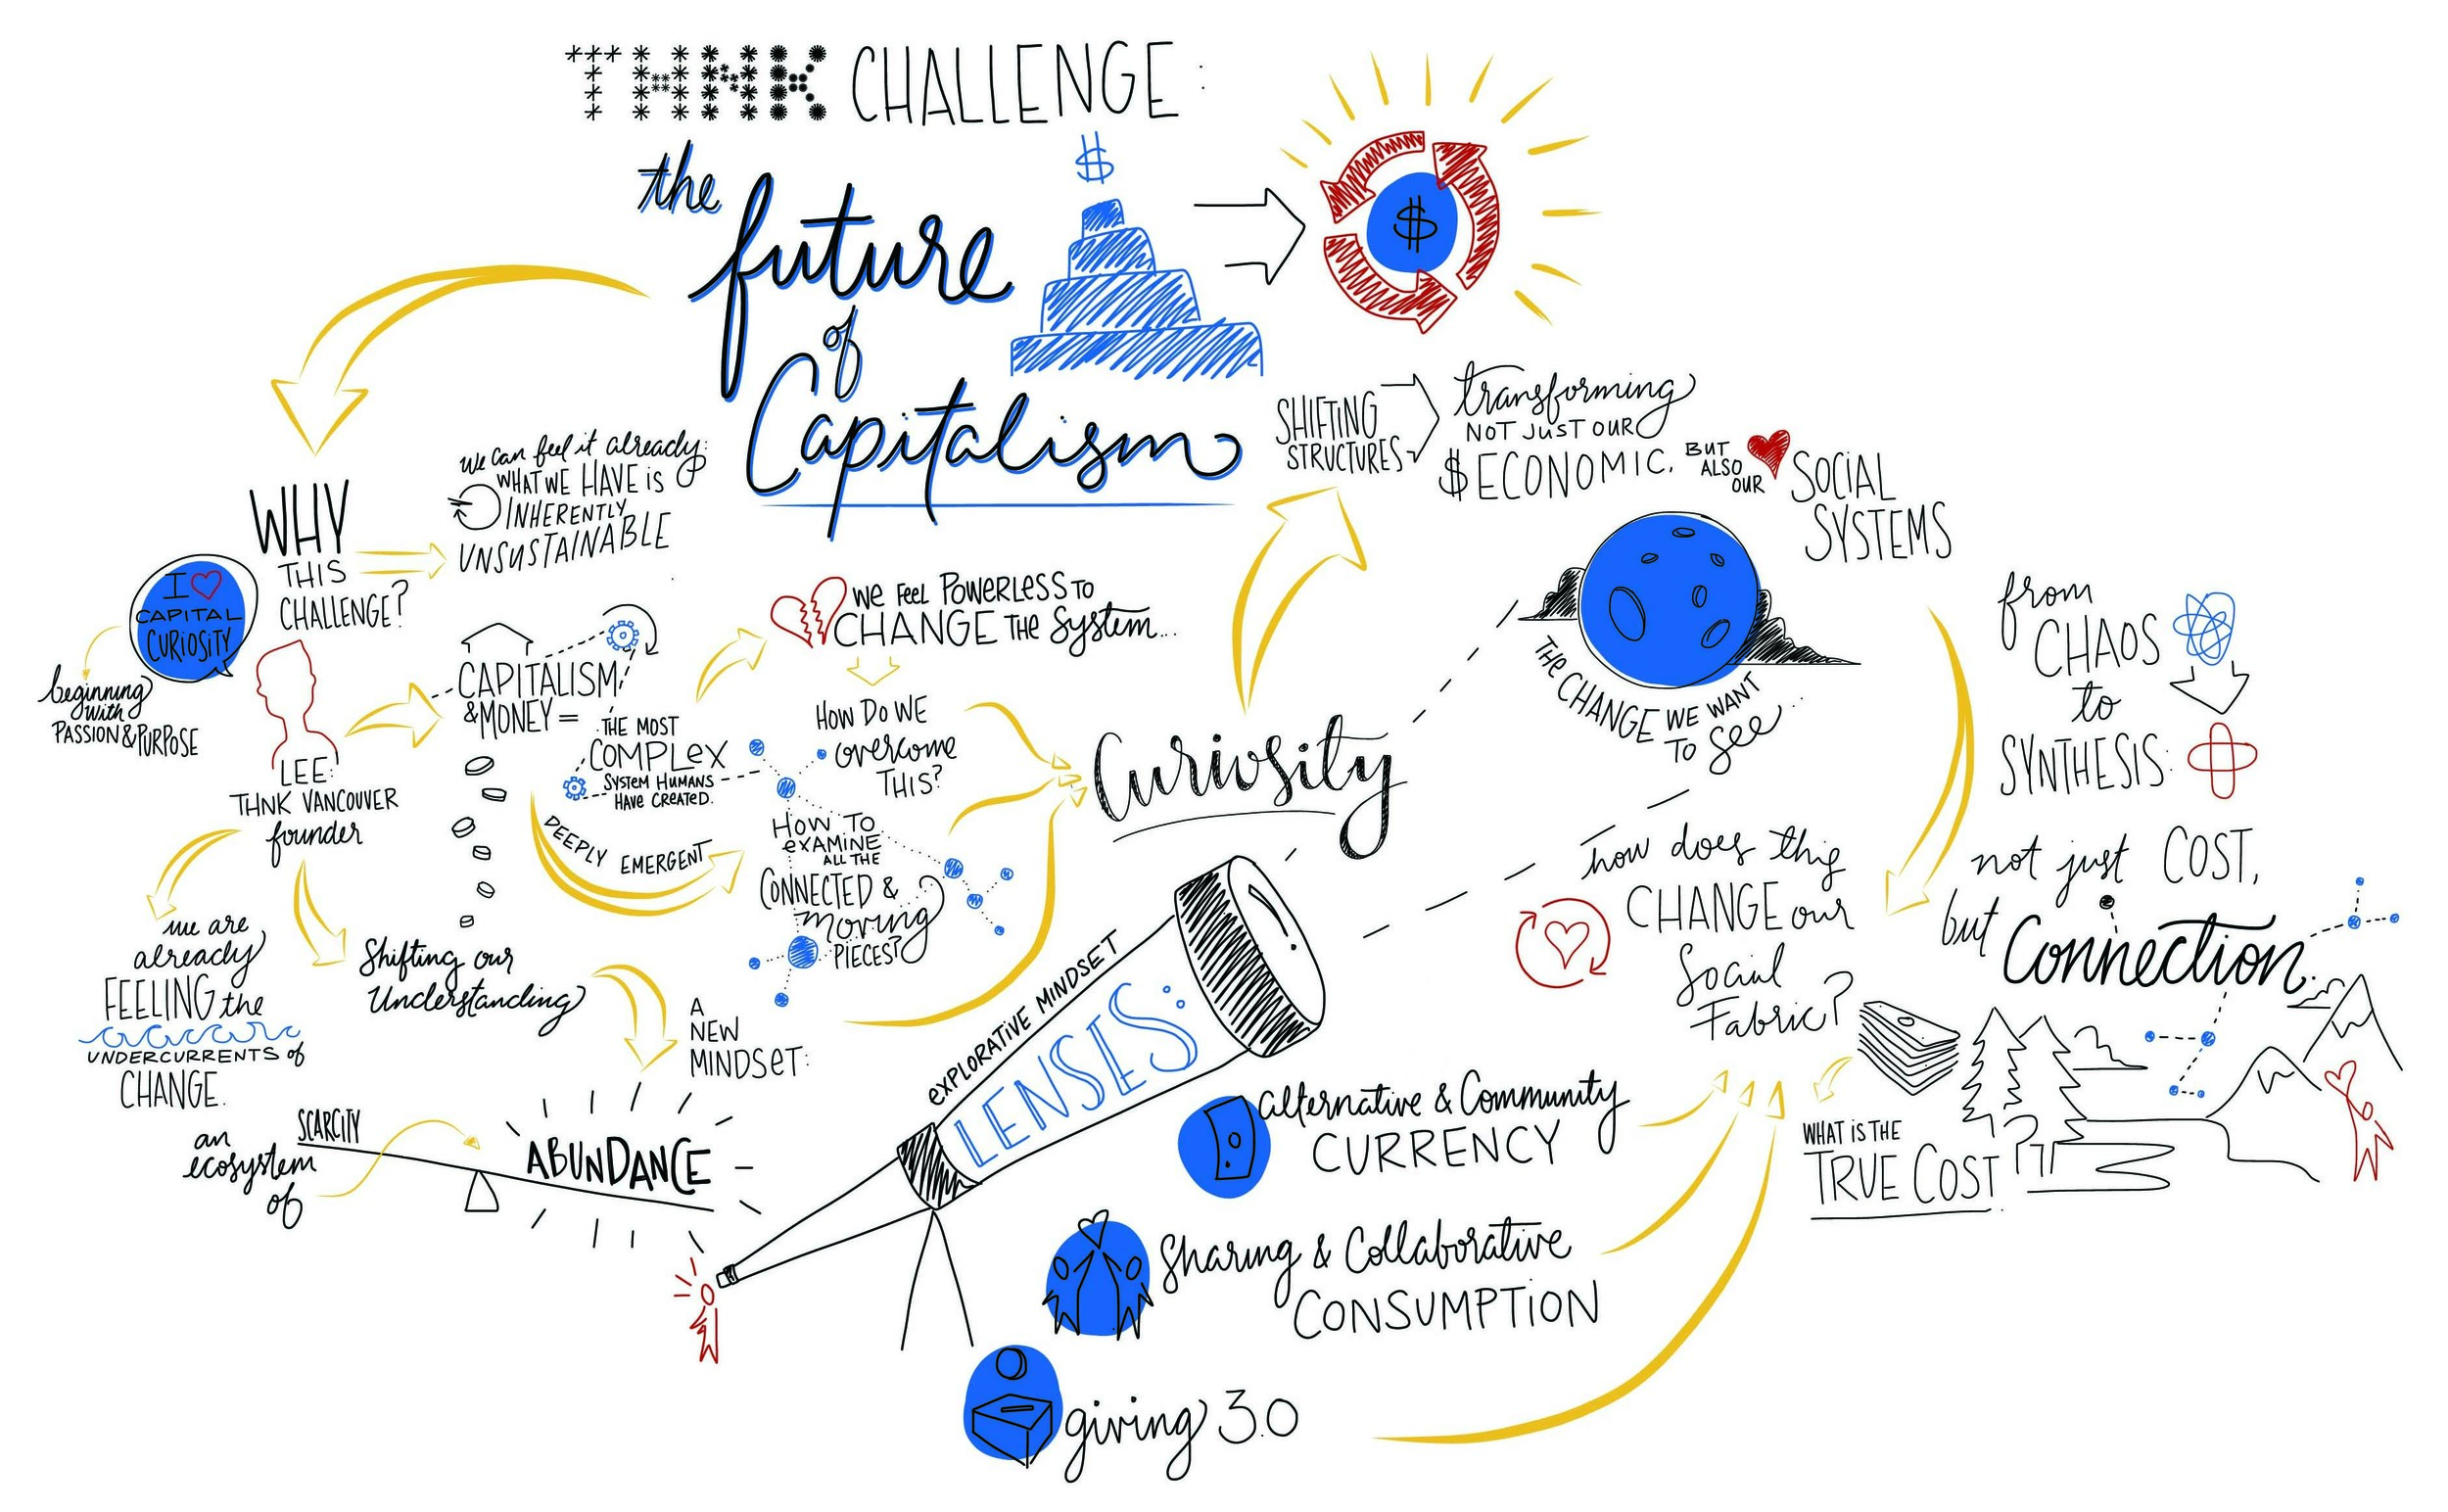 THNK CHALLENGE:
the
future
of
Capitalism
$
$
WHY
THIS
CHALLENGE?
we can feel it already:
WHAT WE HAVE is
INHERENTLY
UNSUSTAINABLE
I
CAPITAL
CURiOSiTY
beginning
with
PASSION & PURPOSE
LEE:
THNK VANCOUVER
founder
we are
already
FEELING the
UNDERCURRENTS of
CHANGE.
Shifting our
Understanding
CAPITALISM
& MONEY =
THE MOST
COMPLEX
SYSTEM HUMANS
HAVE CREATED.
DEEPLY EMERGENT
WE FEEL POWERLESS TO
CHANGE THE System...
HOW DO WE
overcome
THIS?
HOW TO
EXAMINE
ALL THE
CONNECTED &
moving
PIECES?
A
NEW
MINDSET:
an
ecosystem
of
SCARCITY
ABUNDANCE
Curiosity
EXPLORATIVE MINDSET
LENSES:
alternative & Community
CURRENCY
Sharing & Collaborative
CONSUMPTION
giving 3.0
SHIFTING
STRUCTURES
transforming
NOT JUST OUR
$ ECONOMIC,
BUT
ALSO
OUR
SOCIAL
SYSTEMS
THE CHANGE WE WANT
TO See...
how does this
CHANGE our
Social
Fabric?
from
CHAOS
to
SYNTHESIS:
not just COST,
but Connection.
WHAT iS THE
TRUE COST?